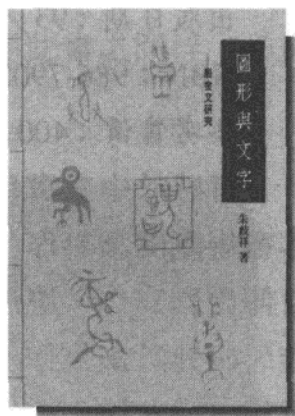 圖形與文字
—殷金文研究
朱歧祥 著